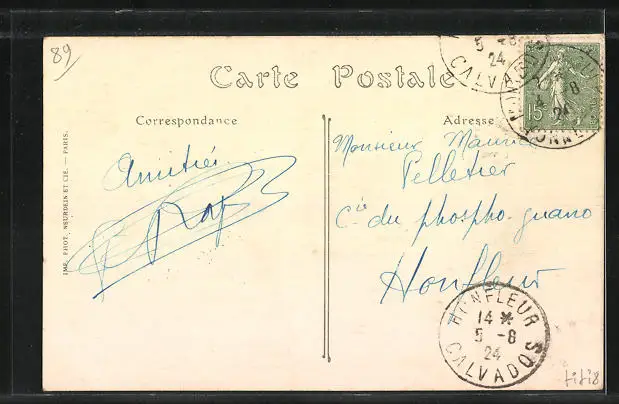 89
Carte Postale
Correspondance
Amitiés
IMP. PHOT. NEURDEIN ET CIE. — PARIS.
Adresse
Monsieur Maurice
Pelletier
Cie du phospho-guano
Honfleur
15
5 -8
24
CALVADOS
8
24
HONFLEUR
14 *
5 -8
24
CALVADOS